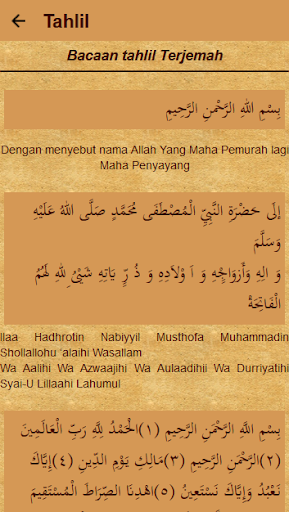 Tahlil
Bacaan tahlil Terjemah
بِسْمِ اللهِ الرَّحْمٰنِ الرَّحِيْمِ
Dengan menyebut nama Allah Yang Maha Pemurah lagi
Maha Penyayang
إلَى حَضْرَةِ النَّبِيِّ الْمُصْطَفَى مُحَمَّدٍ صَلَّى اللهُ عَلَيْهِ
وَسَلَّمَ
وَ الِهِ وَأَزْوَاجِهِ وَ اَوْلاَدِهِ وَ ذُ رِّ يَاتِهِ شَيْئٌ لِلهِ لَهُمُ
الْفَاتِحَةُ
Ilaa Hadhrotin Nabiyyil Musthofa Muhammadin
Shollallohu 'alaihi Wasallam
Wa Aalihi Wa Azwaajihi Wa Aulaadihii Wa Durriyatihi
Syai-U Lillaahi Lahumul
بِسْمِ اللَّهِ الرَّحْمَنِ الرَّحِيمِ (١)الْحَمْدُ لِلَّهِ رَبِّ الْعَالَمِينَ
(٢)الرَّحْمَنِ الرَّحِيمِ (٣)مَالِكِ يَوْمِ الدِّينِ (٤)إِيَّاكَ
نَعْبُدُ وَإِيَّاكَ نَسْتَعِينُ (٥)اهْدِنَا الصِّرَاطَ الْمُسْتَقِيمَ